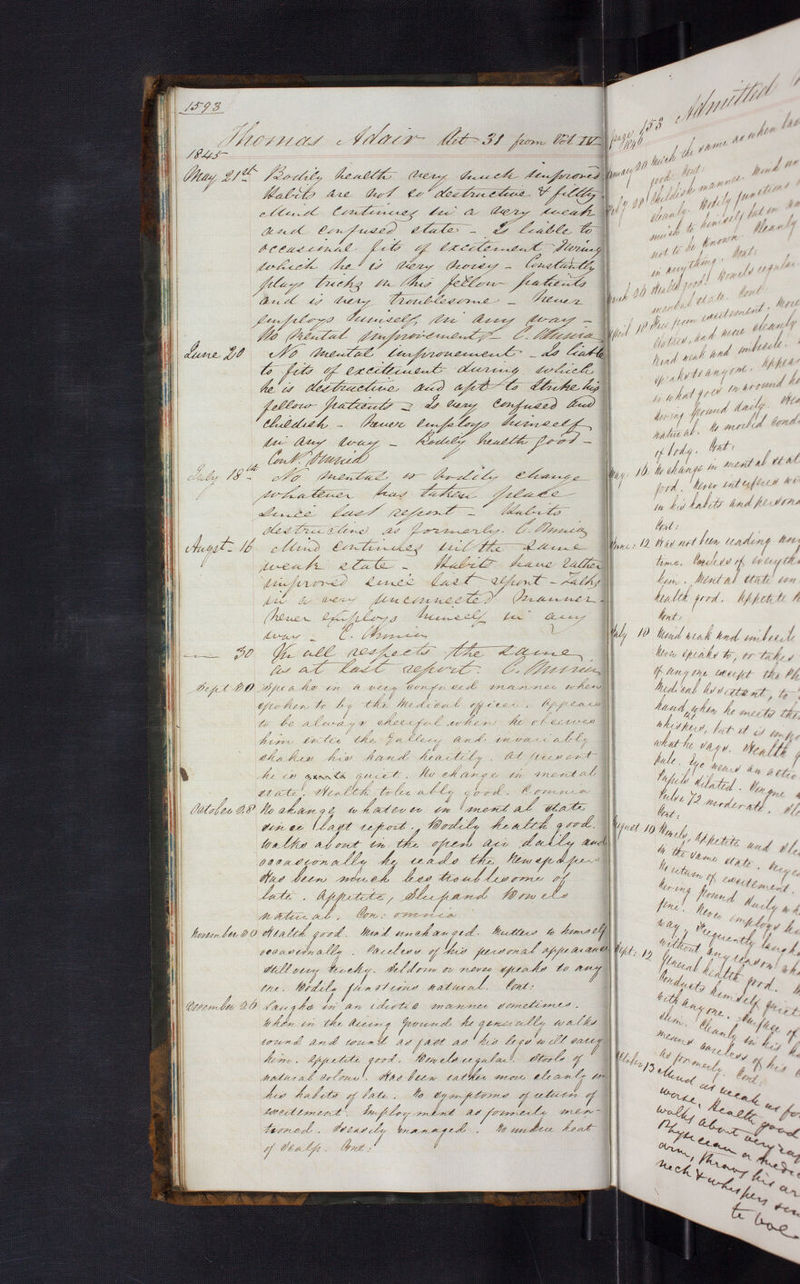 1593
Thomas Adair Aet 31 from Vol IV
1845
May 21st Bodily health very much improved
Habits are not so destructive & filthy
Mind continues in a very weak
and confused state - Is liable to
occasional fits of excitement during
which he is very noisy - Constantly
plays tricks on his fellow patients
and is very troublesome - never
employs himself in any way -
No mental improvement - C. Omnia
June 20 No mental improvement - Is liable
to fits of excitement during which
he is destructive and apt to strike his
fellow patients - Is very confused and
childish - never employs himself
in any way - Bodily health good -
Cont. Omnia
July 18th No mental or bodily change
whatever has taken place
since last report - Habits
destructive as formerly. C. Omnia
Augst. 16 Mind continues in the same
weak state - Habits have rather
improved since last report - Talks
in a very unconnected manner -
never employs himself in any
way - C. Omnia
30 In all respects the same
as at last report. C. Omnia
Sept 30 Speaks in a very confused manner when
spoken to by the Medical officer. Appears
to be always cheerful when he observes
him enter the Gallery and invariably
shakes his hand heartily. At present
he is quiet. No change in mental
state. Health tolerably good. C omnia
October 28 No change whatever in mental state
since last report. Bodily health good.
Walks about in the open air daily and
occasionally he reads the Newspaper
Has been much less troublesome of
late. Appetite, Sleep and Bowels
natural. Con: omnia
November 30 Health good. Mind unchanged. Mutters to himself
occasionally. Careless of his personal appearance
Still very tricky. Seldom or never speaks to any
one. Bodily functions natural. Cont:
December 26 Laughs in an idiotic manner sometimes.
When in the Airing Ground he generally walks
round and round as fast as his legs will carry
him. Appetite good. Bowels regular. Stools of
natural colour. Has been rather more cleanly in
his habits of late. No symptoms of return of
excitement. Employment as formerly men-
tioned. Easily managed. No undue heat
of Scalp. Cont:
page 153 Admitted
1846
much the same as when las
good. Cont:
Feby Childish manner. Mind
cleanly. Bodily functions
to himself but
not to be known. Cleanly
in any thing. Cont:
Health good. Bowels regular.
mental state. Cont:
April 18 Free from excitement. More
and more cleanly
Mind weak and imbecile.
speaks to any one. Appea
in what goes on around h
Airing Ground daily.
natural. No morbid cond
of body. Cont:
May: 16 No change in mental stat
good. Never interferes wi
in his habits and person
Cont:
June: 12 Has not been reading
time. Careless of everyth
him. Mental state
Health good. Appetite
Cont:
July 10 Mind weak and imbecile
Never speaks to, or takes
of any one except the Ph
Medical Assistant, to
hand, when he meets the
whispers, but it is impo
what he says. Health
pale. Eye
Pupils dilated. Tongue
Pulse 72 moderate.
Cont:
August 10 Bowels, Appetite and Sle
in the same state.
No return of excitement.
Airing Ground daily wh
fine. Never employs hi
way. Frequently laughs
without any reason
Sept: 12 General health good.
Conducts himself quiet
with any one.
Cleanly in his
means careless of his
as formerly. Cont:
October 13 Mind as weak as for
worse, Health good
walks about very
Physician or medi
arm, throws his ar
neck & whispers
to